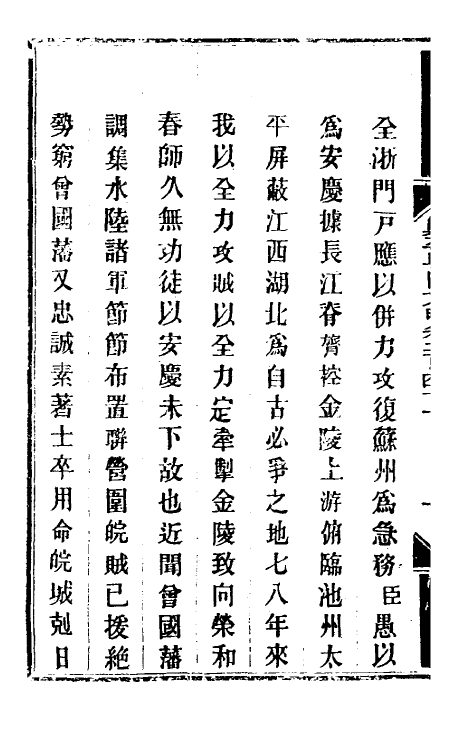 全浙門戸應以併力攻復蘇州爲急務臣愚以
爲安慶據長江脊膂控金陵上游俯臨池州太
平屏蔽江西湖北爲自古必爭之地七八年來
我以全力攻賊以全力定牽掣金陵致向榮和
春師久無功徒以安慶未下故也近聞曾國藩
調集水陸諸軍節節布置聯營圍皖賊已援絶
勢窮曾國藩又忠誠素著士卒用命皖城剋日